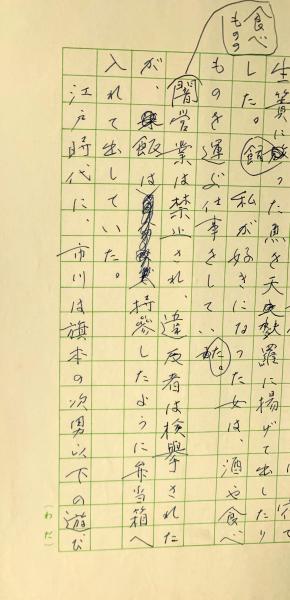 食べ
ものの
生簀に放った魚を天麩羅に揚げて出したり
した。私が好きになった女は、酒や食べ
ものを運ぶ仕事をしていた。
闇営業は禁止され、違反者は検挙された
が、飯は持参したように弁当箱へ
入れて出していた。
江戸時代に、市川は旗本の次男以下の遊び
(わだ)